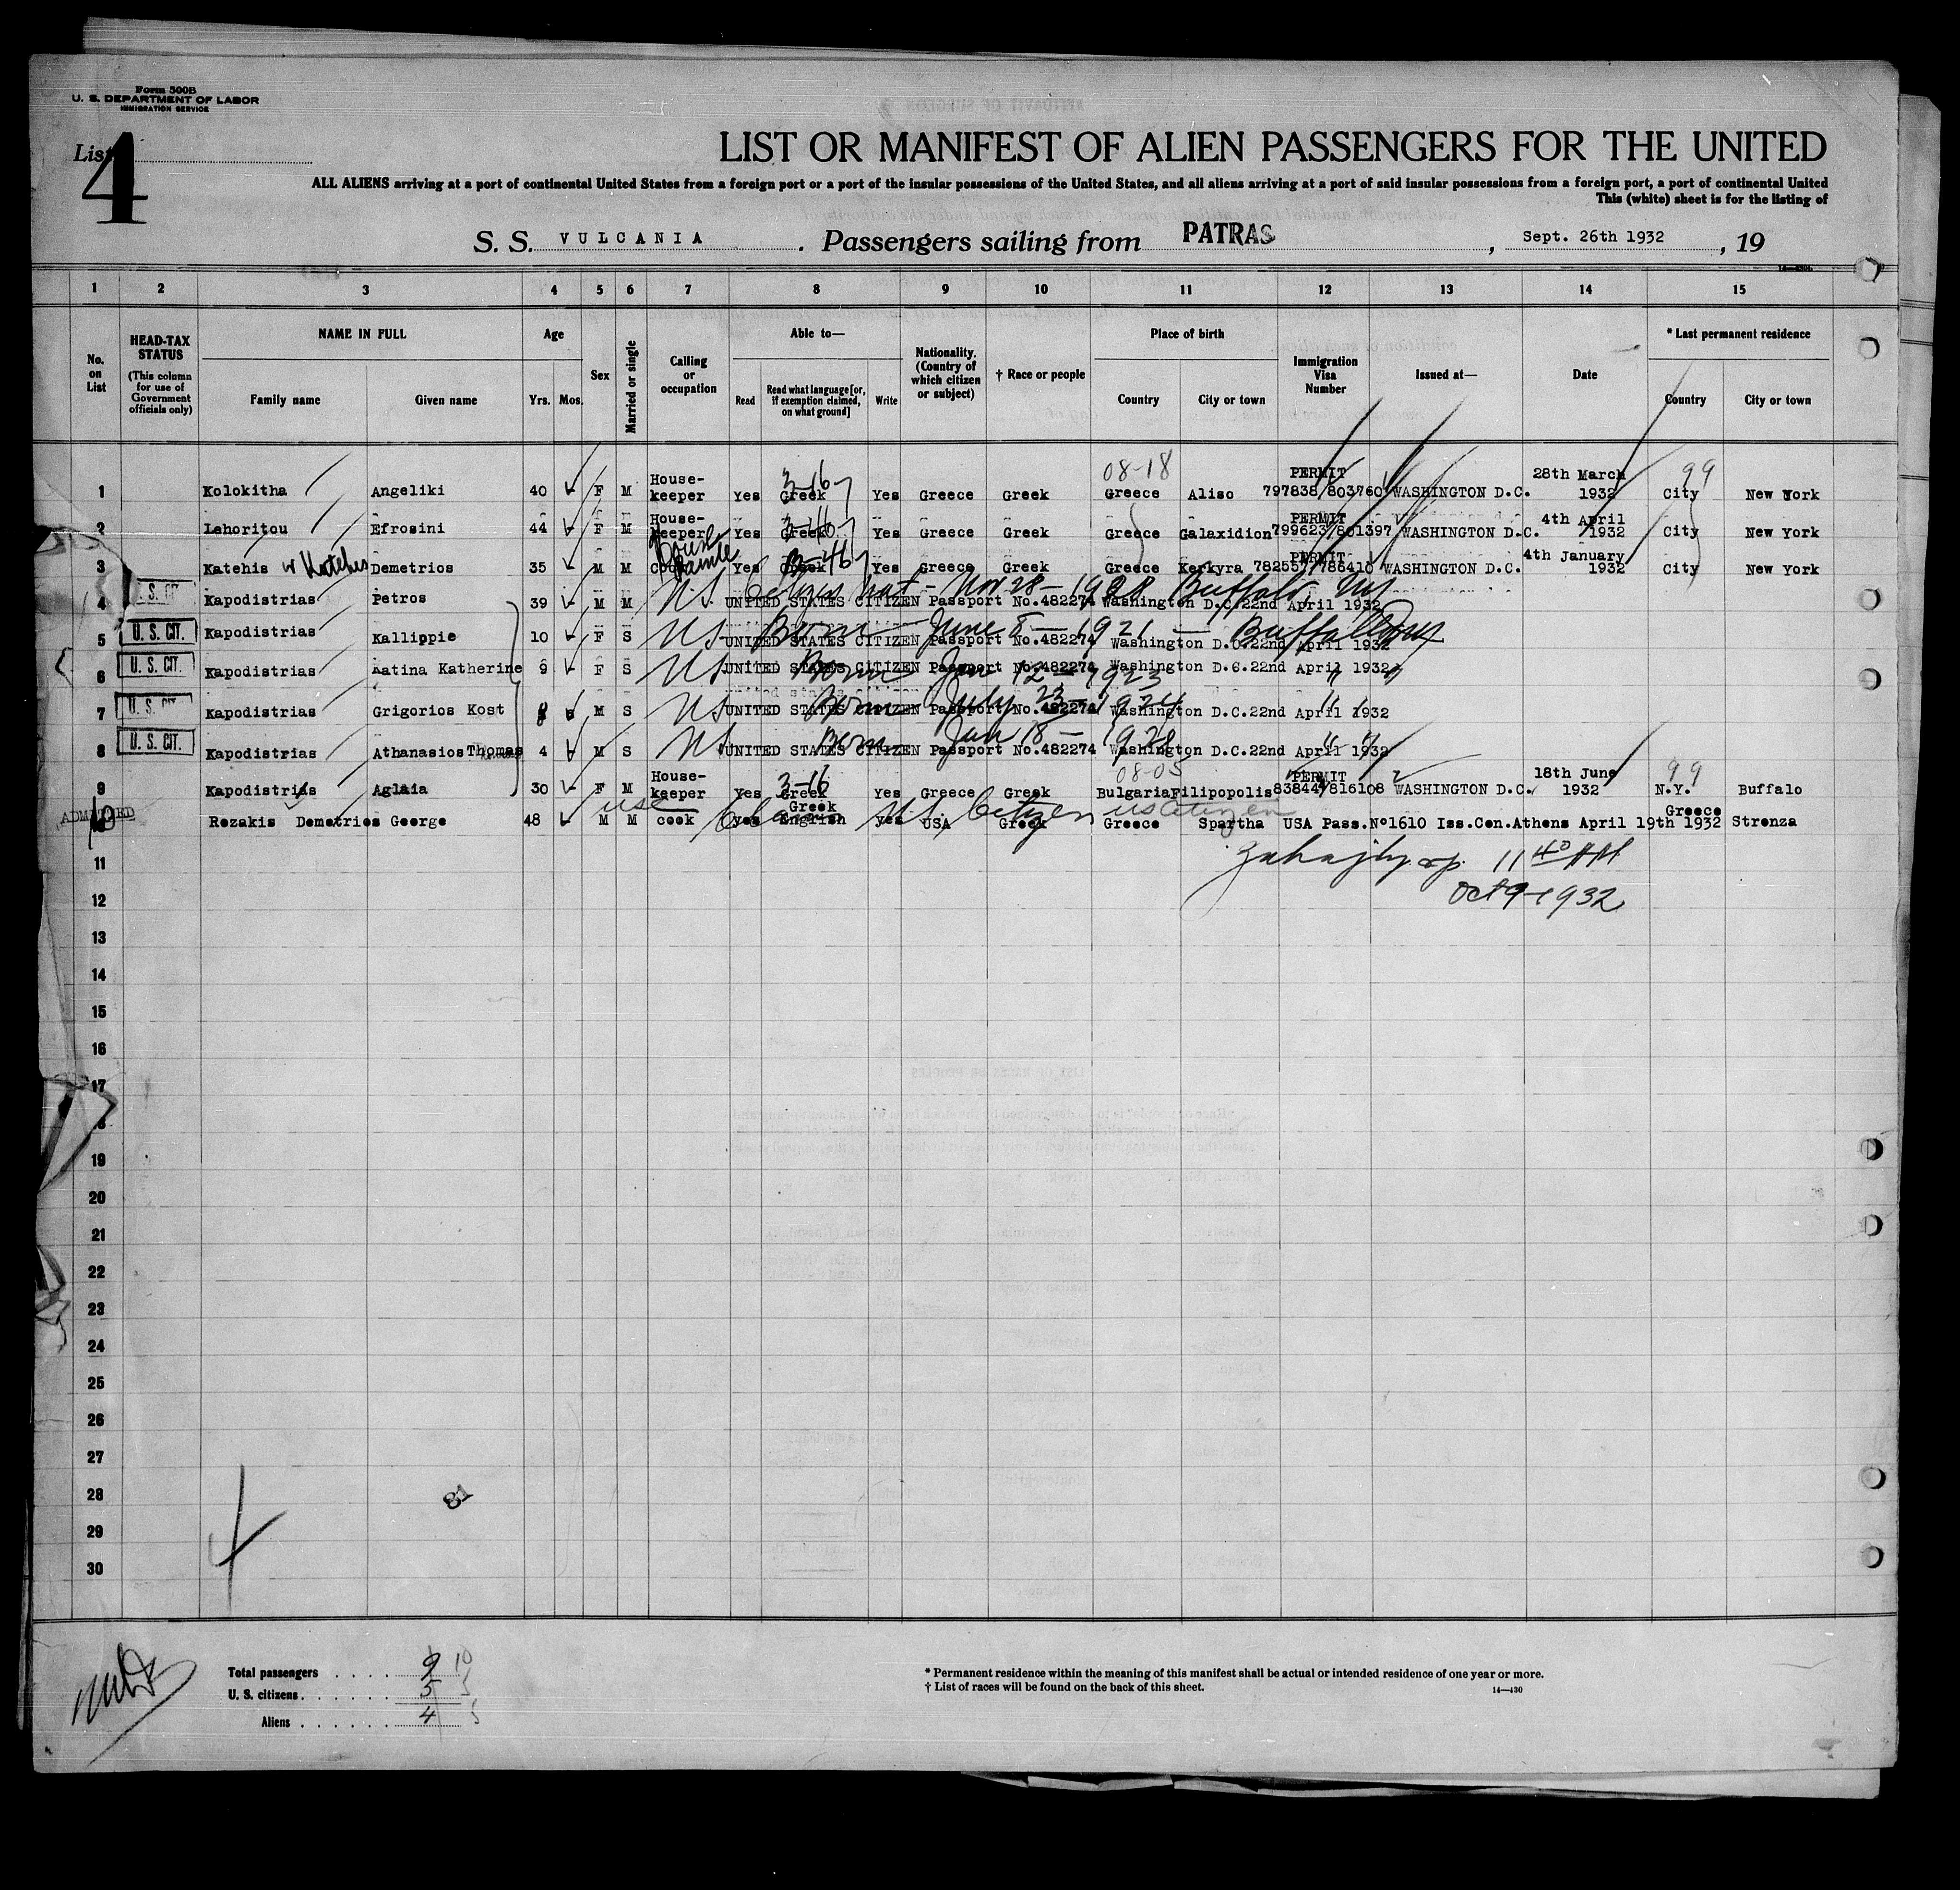 Form 500B
U. S. DEPARTMENT OF LABOR
IMMIGRATION SERVICE
List 4
LIST OR MANIFEST OF ALIEN PASSENGERS FOR THE UNITED
ALL ALIENS arriving at a port of continental United States from a foreign port or a port of the insular possessions of the United States, and all aliens arriving at a port of said insular possessions from a foreign port, a port of continental United
This (white) sheet is for the listing of
S. S. VULCANIA . Passengers sailing from PATRAS , Sept. 26th 1932 , 19
1 2 3 4 5 6 7 8 9 10 11 12 13 14 15
No. on List
HEAD-TAX STATUS (This column for use of Government officials only)
NAME IN FULL Family name Given name
Age Yrs. Mos.
Sex
Married or single
Calling or occupation
Able to— Read Read what language [or, if exemption claimed, on what ground] Write
Nationality. (Country of which citizen or subject)
† Race or people
Place of birth Country City or town
Immigration Visa Number
Issued at—
Date
* Last permanent residence Country City or town
08-18 99
1 Kolokitha Angeliki 40 F M House-keeper Yes Greek 3-16 Yes Greece Greek Greece Aliso PERMIT 797838/803760 WASHINGTON D.C. 28th March 1932 City New York
2 Lehoritou Efrosini 44 F M House-keeper Yes Greek 3-16 Yes Greece Greek Greece Galaxidion PERMIT 799623/801397 WASHINGTON D.C. 4th April 1932 City New York
3 Katehis or Katehes Demetrios 35 M M Cook Yes Greek Yes Greece Greek Greece Kerkyra PERMIT 782557/786410 WASHINGTON D.C. 4th January 1932 City New York
4 Kapodistrias Petros 39 M M UNITED STATES CITIZEN Passport No.482274 Washington D.C.22nd April 1932
US Nov 28-1928 Buffalo NY
5 U. S. CIT. Kapodistrias Kallippie 10 F S UNITED STATES CITIZEN Passport No.482274 Washington D.C.22nd April 1932
US Born June 8-1921 - Buffalo NY
6 U. S. CIT. Kapodistrias Aatina Katherine 9 F S UNITED STATES CITIZEN Passport No.482274 Washington D.C.22nd April 1932
US Born Jan 12-1923 " "
7 U. S. CIT. Kapodistrias Grigorios Kost 8 M S UNITED STATES CITIZEN Passport No.482274 Washington D.C.22nd April 1932
US Born July 23-1924 " "
8 U. S. CIT. Kapodistrias Athanasios Thomas 4 M S UNITED STATES CITIZEN Passport No.482274 Washington D.C.22nd April 1932
US Born Jan 18-1928 " "
08-05 99
9 Kapodistrias Aglaia 30 F M House-keeper Yes Greek 3-16 Yes Greece Greek Bulgaria Filipopolis PERMIT 838444/816108 WASHINGTON D.C. 18th June 1932 N.Y. Buffalo
ADMITTED
10 Rozakis Demetrios George 48 M M cook yes Greek English yes USA Greek Greece Spartha USA Pass.Nº1610 Iss.Con.Athens April 19th 1932 Greece Stronza
usc US Citizen us citizen
11
11 40 AM
12
Oct 9-1932
13
14
15
16
17
19
20
21
22
23
24
25
26
27
28
29
30
81
Total passengers . . . . 9 10
U. S. citizens . . . . . . 5 5
Aliens . . . . . . 4 5
* Permanent residence within the meaning of this manifest shall be actual or intended residence of one year or more.
† List of races will be found on the back of this sheet.
14—430